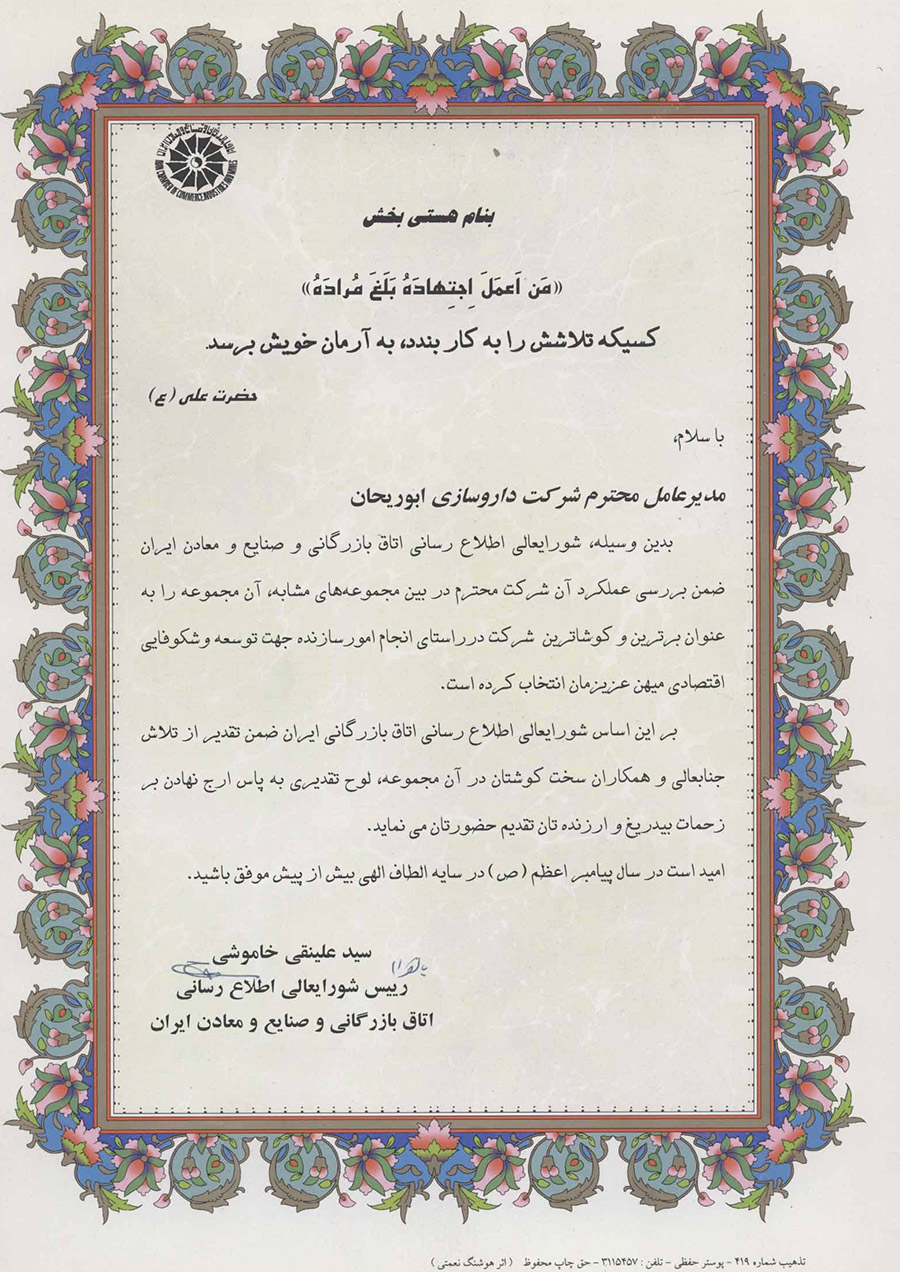 IRAN CHAMBER OF COMMERCE, INDUSTRIES AND MINES
بنام هستی بخش
«مَن اَعمَلَ اِجتِهادَهُ بَلَغَ مُرادَهُ»
کسیکه تلاشش را به کار بندد، به آرمان خویش برسد.
حضرت علی (ع)
با سلام،
مدیرعامل محترم شرکت داروسازی ابوریحان
بدین وسیله، شورایعالی اطلاع رسانی اتاق بازرگانی و صنایع و معادن ایران
ضمن بررسی عملکرد آن شرکت محترم در بین مجموعه‌های مشابه، آن مجموعه را به
عنوان برترین و کوشاترین شرکت درراستای انجام امورسازنده جهت توسعه وشکوفایی
اقتصادی میهن عزیزمان انتخاب کرده است.
بر این اساس شورایعالی اطلاع رسانی اتاق بازرگانی ایران ضمن تقدیر از تلاش
جنابعالی و همکاران سخت کوشتان در آن مجموعه، لوح تقدیری به پاس ارج نهادن بر
زحمات بیدریغ و ارزنده تان تقدیم حضورتان می نماید.
امید است در سال پیامبر اعظم (ص) در سایه الطاف الهی بیش از پیش موفق باشید.
سید علینقی خاموشی
رییس شورایعالی اطلاع رسانی
اتاق بازرگانی و صنایع و معادن ایران
تذهیب شماره ۴۱۹ - پوستر حفظی - تلفن : ۳۱۱۵۴۵۷ - حق چاپ محفوظ ( اثر هوشنگ نعمتی )